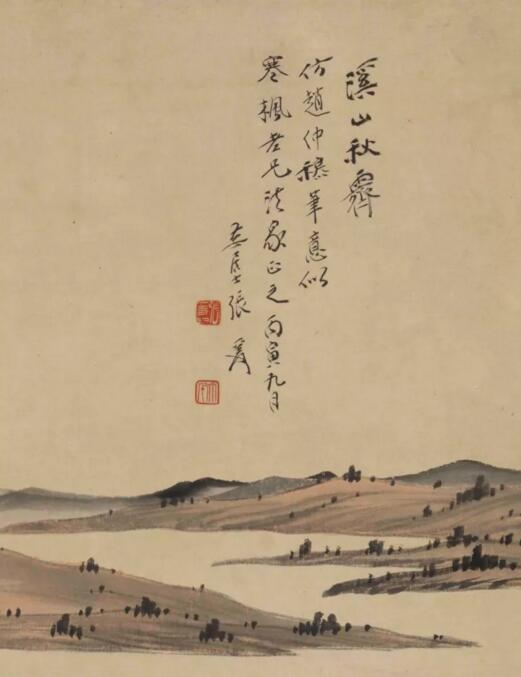 溪山秋霽
仿趙仲穆筆意似
寒楓老兄法家正之丙寅九月
大千居士張爰